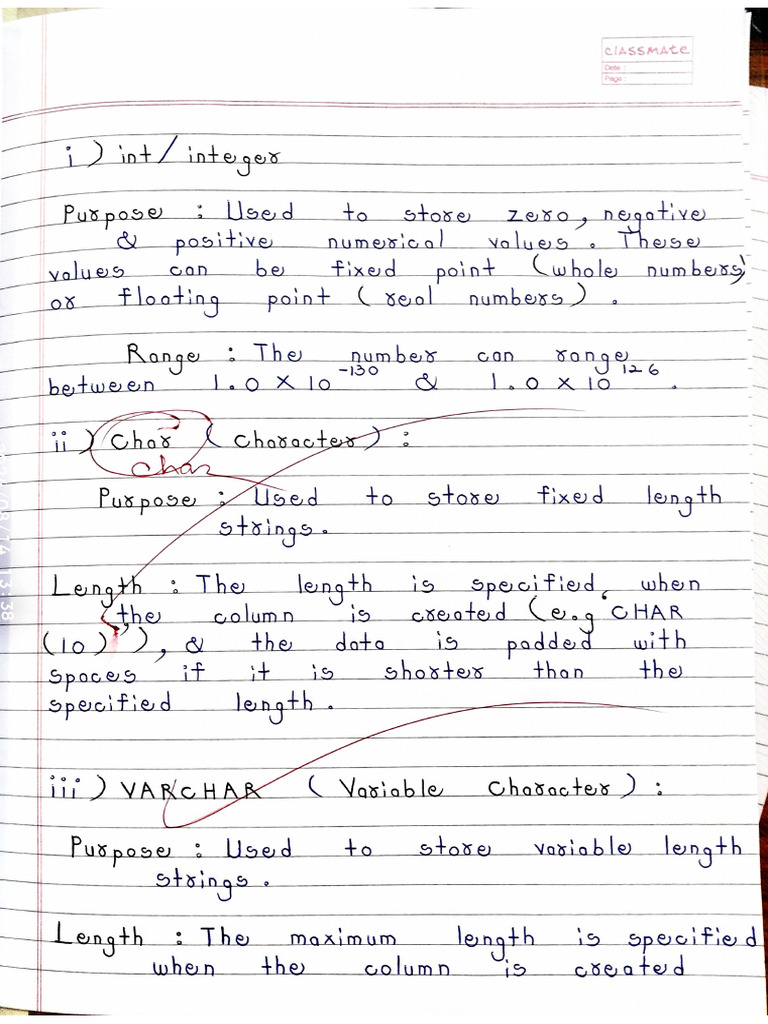 classmate
Date :
Page :
i ) int / integer
Purpose : Used to store zero, negative
& positive numerical values. These
values can be fixed point (whole numbers)
or floating point ( real numbers ) .
Range : The number can range
between 1.0 × 10⁻¹³⁰ & 1.0 × 10¹²⁶ .
ii ) Char ( Character ) :
Char
Purpose : Used to store fixed length
strings.
Length : The length is specified when
the column is created (e.g 'CHAR
(10)'), & the data is padded with
spaces if it is shorter than the
specified length.
iii ) VARCHAR ( Variable Character ) :
Purpose : Used to store variable length
strings.
Length : The maximum length is specified
when the column is created